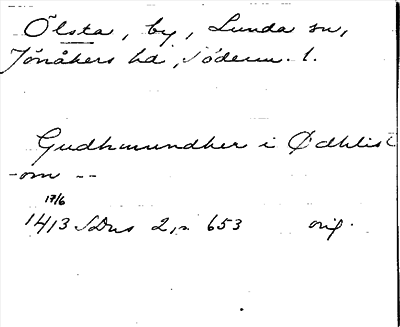 Ölsta, by, Lunda sn,
Jönåkers hd, Söderm. l.
Gudhmundher i Ødhlist
-om --
17/6
1413 SDns 2, s 653 orig.